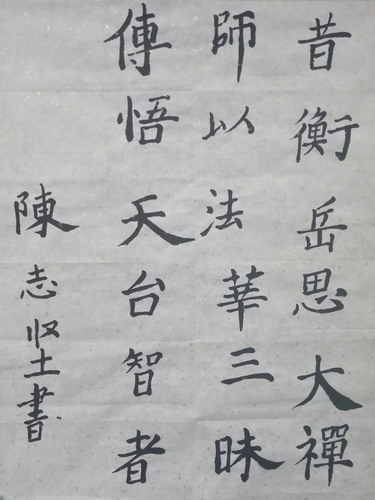 昔衡岳思大禪
師以法華三昧
傳悟天台智者
陳志收土書